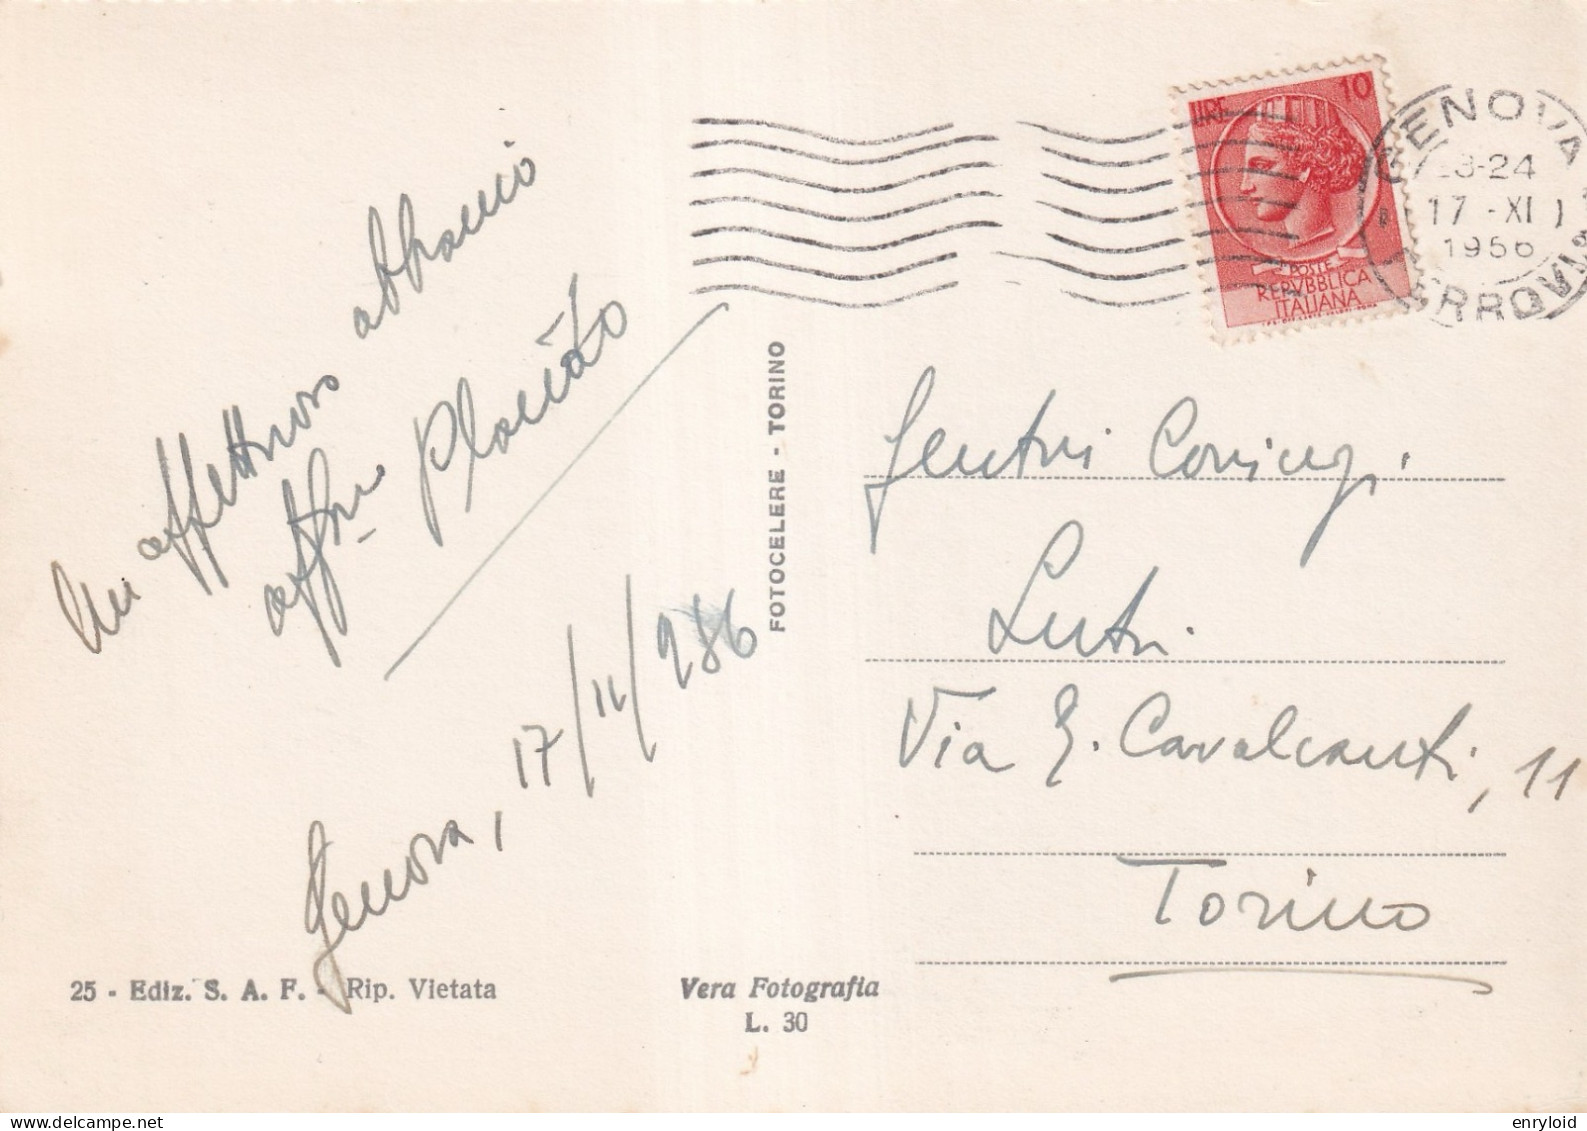 Un affettuoso abbraccio
aff.mo Placido
Genova, 17/11/956
25 - Ediz. S. A. F. - Rip. Vietata
Vera Fotografia
L. 30
FOTOCELERE - TORINO
LIRE 10
POSTE
REPVBBLICA
ITALIANA
GENOVA
23-24
17 -XI
1956
FERROVIA
Gentmi Coniugi
Via G. Cavalcanti, 11
Torino
enryloid
delcampe.net